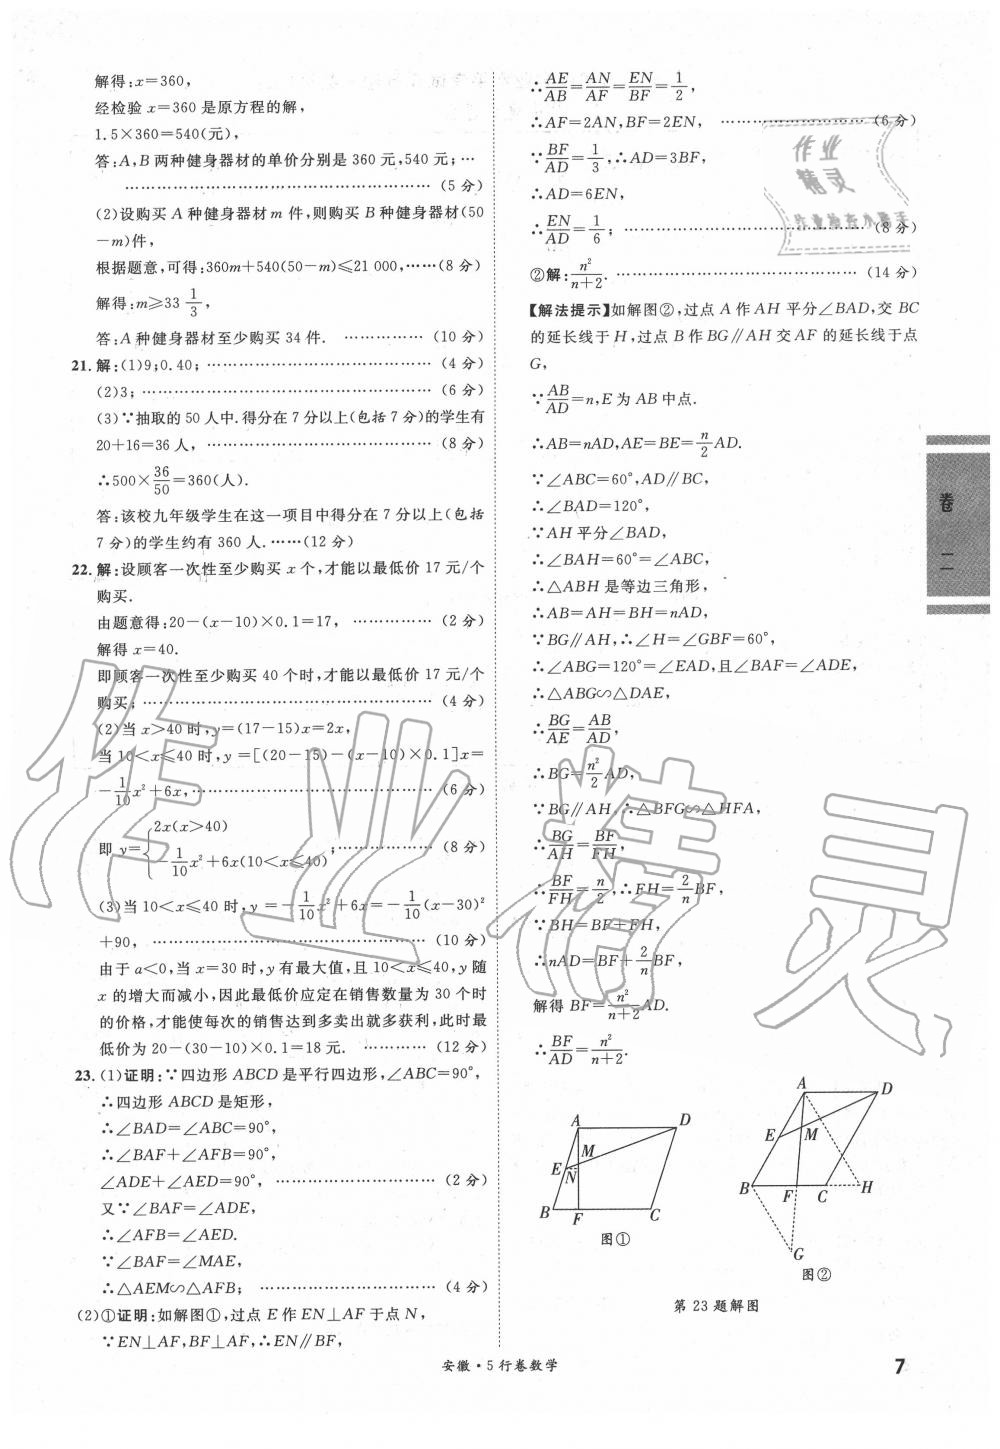 解得:x=360,
经检验 x=360 是原方程的解,
1.5×360=540(元),
答:A,B 两种健身器材的单价分别是 360 元,540 元;…
……………………………………………… (5 分)
(2)设购买 A 种健身器材 m 件,则购买 B 种健身器材(50
-m)件,
根据题意,可得:360m+540(50-m)≤21 000,……(8 分)
解得:m≥33 1/3,
答:A 种健身器材至少购买 34 件. …………… (10 分)
21.解:(1)9;0.40;…………………………………… (4 分)
(2)3;……………………………………………… (6 分)
(3)∵抽取的 50 人中.得分在 7 分以上(包括 7 分)的学生有
20+16=36 人,…………………………………… (8 分)
∴500×36/50=360(人).
答:该校九年级学生在这一项目中得分在 7 分以上(包括
7 分)的学生约有 360 人.……(12 分)
22.解:设顾客一次性至少购买 x 个,才能以最低价 17 元/个
购买.
由题意得:20-(x-10)×0.1=17, …………… (2 分)
解得 x=40.
即顾客一次性至少购买 40 个时,才能以最低价 17 元/个
购买;……………………………………………… (4 分)
(2)当 x>40 时,y=(17-15)x=2x,
当 10<x≤40 时,y=[(20-15)-(x-10)×0.1]x=
-1/10x²+6x,…………………………………… (6 分)
即 y={2x(x>40)
-1/10x²+6x(10<x≤40) ;…………… (8 分)
(3)当 10<x≤40 时,y=-1/10x²+6x=-1/10(x-30)²
+90, ………………………………………… (10 分)
由于 a<0,当 x=30 时,y 有最大值,且 10<x≤40,y 随
x 的增大而减小,因此最低价应定在销售数量为 30 个时
的价格,才能使每次的销售达到多卖出就多获利,此时最
低价为 20-(30-10)×0.1=18 元. ………… (12 分)
23.(1)证明:∵四边形 ABCD 是平行四边形,∠ABC=90°,
∴四边形 ABCD 是矩形,
∴∠BAD=∠ABC=90°,
∴∠BAF+∠AFB=90°,
∠ADE+∠AED=90°, ………………………… (2 分)
又∵∠BAF=∠ADE,
∴∠AFB=∠AED.
∵∠BAF=∠MAE,
∴△AEM∽△AFB; …………………………… (4 分)
(2)①证明:如解图①,过点 E 作 EN⊥AF 于点 N,
∵EN⊥AF,BF⊥AF,∴EN∥BF,
∴AE/AB=AN/AF=EN/BF=1/2,
∴AF=2AN,BF=2EN, ……………………… (6 分)
∵BF/AD=1/3,∴AD=3BF,
∴AD=6EN,
∴EN/AD=1/6; ……………………………………… (8 分)
②解:n²/(n+2). ……………………………………… (14 分)
【解法提示】如解图②,过点 A 作 AH 平分∠BAD,交 BC
的延长线于 H,过点 B 作 BG∥AH 交 AF 的延长线于点
G,
∵AB/AD=n,E 为 AB 中点.
∴AB=nAD,AE=BE=n/2AD.
∵∠ABC=60°,AD∥BC,
∴∠BAD=120°,
∵AH 平分∠BAD,
∴∠BAH=60°=∠ABC,
∴△ABH 是等边三角形,
∴AB=AH=BH=nAD,
∵BG∥AH,∴∠H=∠GBF=60°,
∴∠ABG=120°=∠EAD,且∠BAF=∠ADE,
∴△ABG∽△DAE,
∴BG/AE=AB/AD,
∴BG=n²/2AD,
∵BG∥AH,∴△BFG∽△HFA,
∴BG/AH=BF/FH,
∴BF/FH=n/2,∴FH=2/nBF,
∵BH=BF+FH,
∴nAD=BF+2/nBF,
解得 BF=n²/(n+2)AD.
∴BF/AD=n²/(n+2).
A D M E N B F C
图①
A D E M B F C H G
图②
第 23 题解图
卷二
安徽·5 行卷数学
7
作业精灵
作业精灵